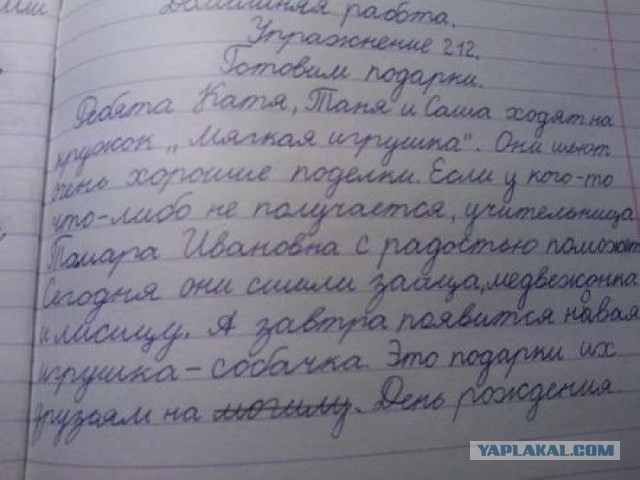 Домашняя работа.
Упражнение 212.
Готовим подарки.
Ребята Катя, Таня и Саша ходят на
кружок „Мягкая игрушка". Они шьют
очень хорошие поделки. Если у кого-то
что-либо не получается, учительница
Тамара Ивановна с радостью поможет
Сегодня они сшили зайца, медвежонка
и лисицу. А завтра появится новая
игрушка – собачка. Это подарки их
друзьям на могилу. День рождения.
YAPLAKAL.COM